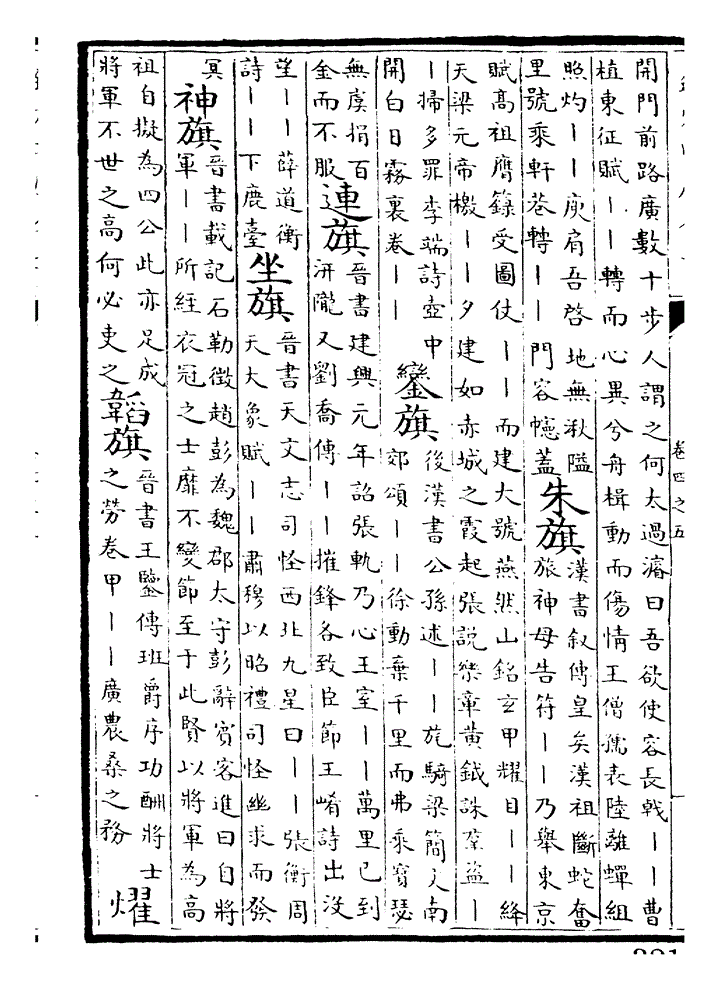 開門前路廣數十步人謂之何太過濬曰吾欲使容長戟丨丨曹
植東征賦丨丨轉而心異兮舟楫動而傷情王僧孺表陸離蟬組
照灼丨丨庾肩吾啓地無湫隘
里號乘軒巷轉丨丨門容幰蓋
朱旗
漢書叙傳皇矣漢祖斷蛇奮
旅神母告符丨丨乃舉東京
賦高祖膺籙受圖仗丨丨而建大號燕然山銘玄甲耀日丨丨絳
天梁元帝檄丨丨夕建如赤城之霞起張說樂章黃鉞誅羣盜丨
丨掃多罪李端詩壺中
開白日霧裏卷丨丨
鑾旗
後漢書公孫述丨丨旄騎梁簡文南
郊頌丨丨徐動棄千里而弗乘寳瑟
無虞捐百
金而不服
連旗
晉書建興元年詔張軌乃心王室丨丨萬里已到
汧隴又劉喬傳丨丨摧鋒各致臣節王嵪詩出沒
望丨丨薛道衡
詩丨丨下鹿臺
坐旗
晉書天文志司怪西北九星曰丨丨張衡周
天大象賦丨丨肅穆以昭禮司怪幽求而發
冥
神旗
晉書載記石勒徵趙彭為魏郡太守彭辭賓客進曰自將
軍丨丨所經衣冠之士靡不變節至于此賢以將軍為高
祖自擬為四公此亦足成
將軍不世之高何必吏之
韜旗
晉書王鑒傳班爵序功酬將士
之勞卷甲丨丨廣農桑之務
耀
卷四之五